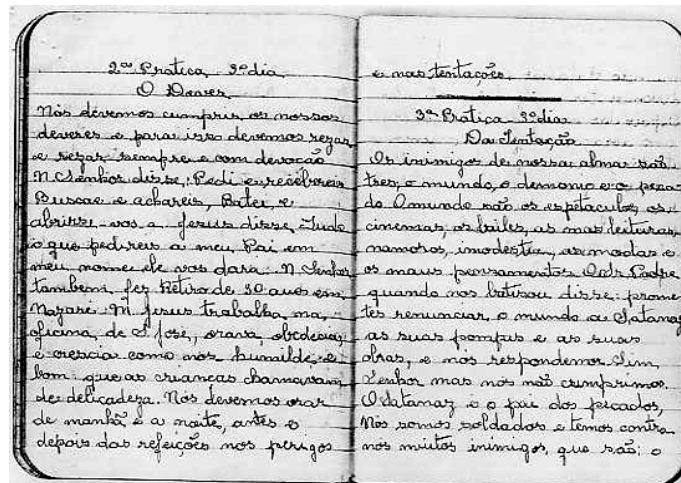 2ª Pratica 3º dia
O Dever
Nós devemos cumprir os nossos
deveres e para isso devemos rezar
e rezar sempre e com devoção
N. Senhor disse: Pedi e recebereis
Buscae e achareis, Batei, e
abrirse-vos a Jesus disse Tudo
o que pedireis a meu Pai em
meu nome ele vos dara. N. Senhor
tambem fez Retiro de 30 anos em
Nazaré. M Jesus trabalha na
oficina de S. José, orava, obedecia,
e crescia como nós humilde e
bom que as crianças chamavam
de delicadeza. Nós devemos orar
de manhã e a noite, antes e
depois das refeições nos perigos
e nas tentações.
3ª Pratica 3º dia
Da Tentação
Os inimigos de nossa alma são
tres, o mundo, o demonio e o peca-
do O mundo são os espetaculos, os
cinemas, os bailes, as mas leituras,
namoros, imodestia, as modas e
os maus pensamentos O dr. Padre
quando nos batisou disse: prome-
tes renunciar, o mundo a Satanaz
as suas pompas e as suas
obras, e nós respondemos Sim
Senhor mas nós não cumprimos.
O Satanaz é o pai dos pecados,
Nós somos soldados e temos contra
nós muitos inimigos, que são; o